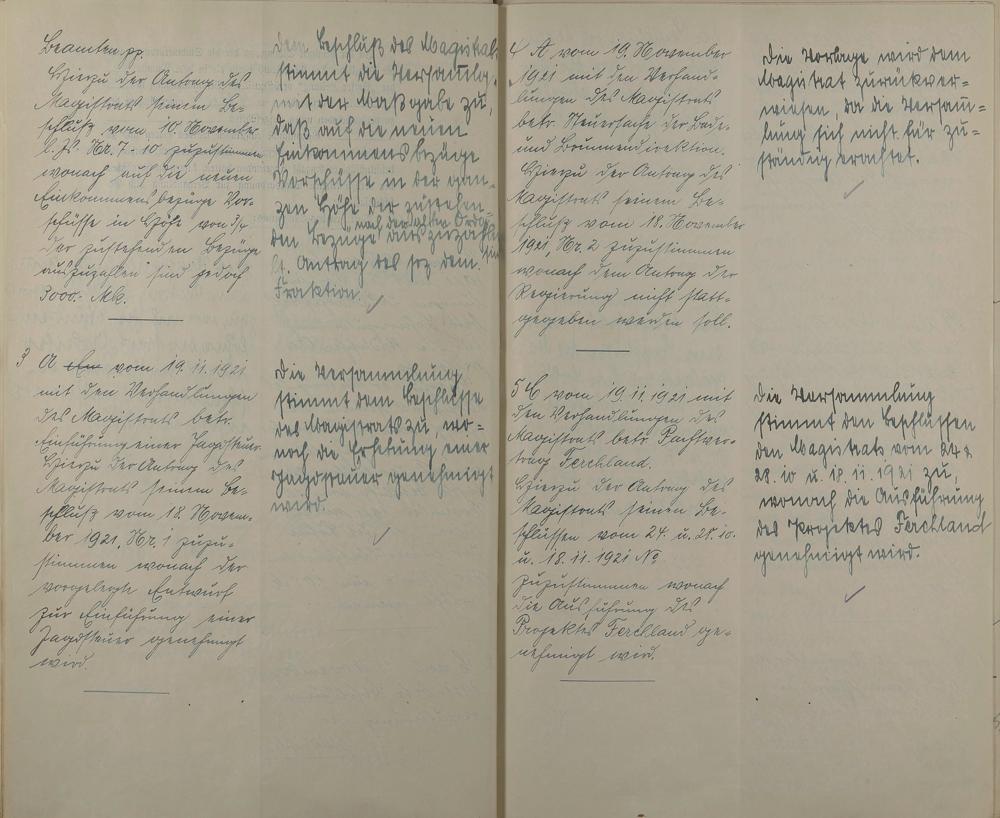 Beamten pp.
Hierzu der Antrag des
Magistrats seinem Be-
schluß vom 10. November
l. Js. Nr. 7-10 zuzustimmen
wonach auf die neuen
Einkommensbezüge Vor-
schüsse in Höhe von 3/4
der zustehenden Bezüge
auszuzahlen sind jedoch
3000.- Mk.
dem Beschluß des Magistrats
stimmt die Versammlg.
mit der Maßgabe zu,
daß auf die neuen
Einkommensbezüge
Vorschüsse in der gan-
zen Höhe der zustehen-
nach der alten Ordg.
den Bezüge auszuzahlen sind
lt. Antrag des soz dem.
Fraktion.
3 A vom 19.11.1921
mit den Verhandlungen
des Magistrats betr.
Einführung einer Jagdsteuer.
Hierzu der Antrag des
Magistrats seinem Be-
schluß vom 18. Novem-
ber 1921, Nr. 1 zuzu-
stimmen wonach der
vorgelegte Entwurf
zur Einführung einer
Jagdsteuer genehmigt
wird.
Die Versammlung
stimmt dem Beschlusse
des Magistrats zu, wo-
nach die Erhebung einer
Jagdsteuer genehmigt
wird.
4 A vom 19. November
1921 mit den Verhand-
lungen des Magistrats
betr. Steuersache der Bade-
und Brunnendirektion.
Hierzu der Antrag des
Magistrats seinem Be-
schluß vom 18. November
1921, Nr. 2 zuzustimmen
wonach dem Antrag der
Regierung nicht statt-
gegeben werden soll.
Die Vorlage wird dem
Magistrat zurückver-
wiesen, da die Versam-
lung sich nicht für zu-
ständig erachtet.
5 C vom 19.11.1921 mit
den Verhandlungen des
Magistrats betr. Pachtver-
trag Ferchland.
Hierzu der Antrag des
Magistrats seinen Be-
schlüssen vom 24. u. 28.10.
u. 18.11.1921 No
zuzustammen wonach
die Ausführung des
Projektes Ferchland ge-
nehmigt wird.
Die Versammlung
stimmt den Beschlüssen
den Magistrats vom 24 u
28.10 u. 18.11.1921 zu,
wonach die Ausführung
des Projektes Ferchland
genehmigt wird.